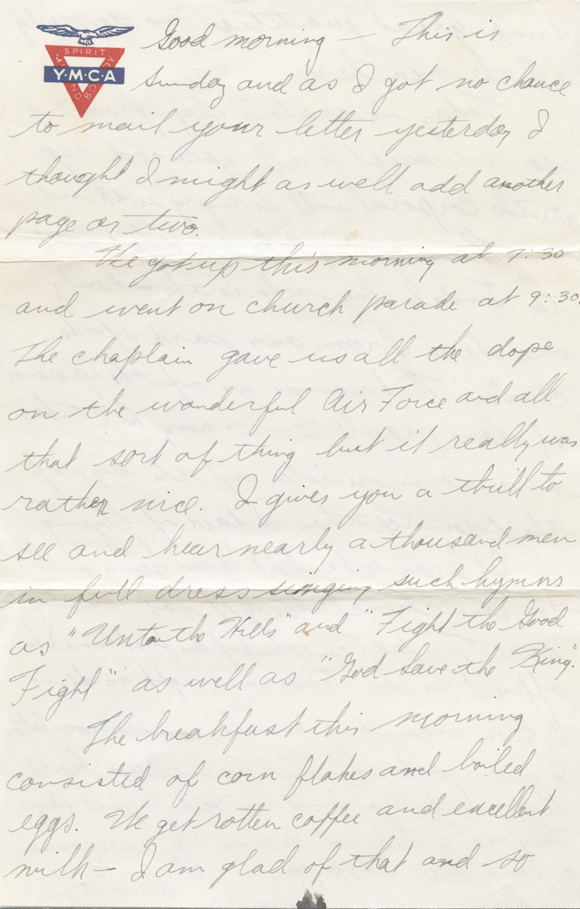 SPIRIT
Y·M·C·A
MIND BODY
Good morning — This is
Sunday and as I got no chance
to mail your letter yesterday I
thought I might as well add another
page or two.
We got up this morning at 7:30
and went on church parade at 9:30
The chaplain gave us all the dope
on the wonderful Air Force and all
that sort of thing but it really was
rather nice. I gives you a thrill to
see and hear nearly a thousand men
in full dress singing such hymns
as "Unto the Hills" and "Fight the Good
Fight" as well as "God Save the King".
The breakfast this morning
consisted of corn flakes and boiled
eggs. We get rotten coffee and excellent
milk — I am glad of that and so